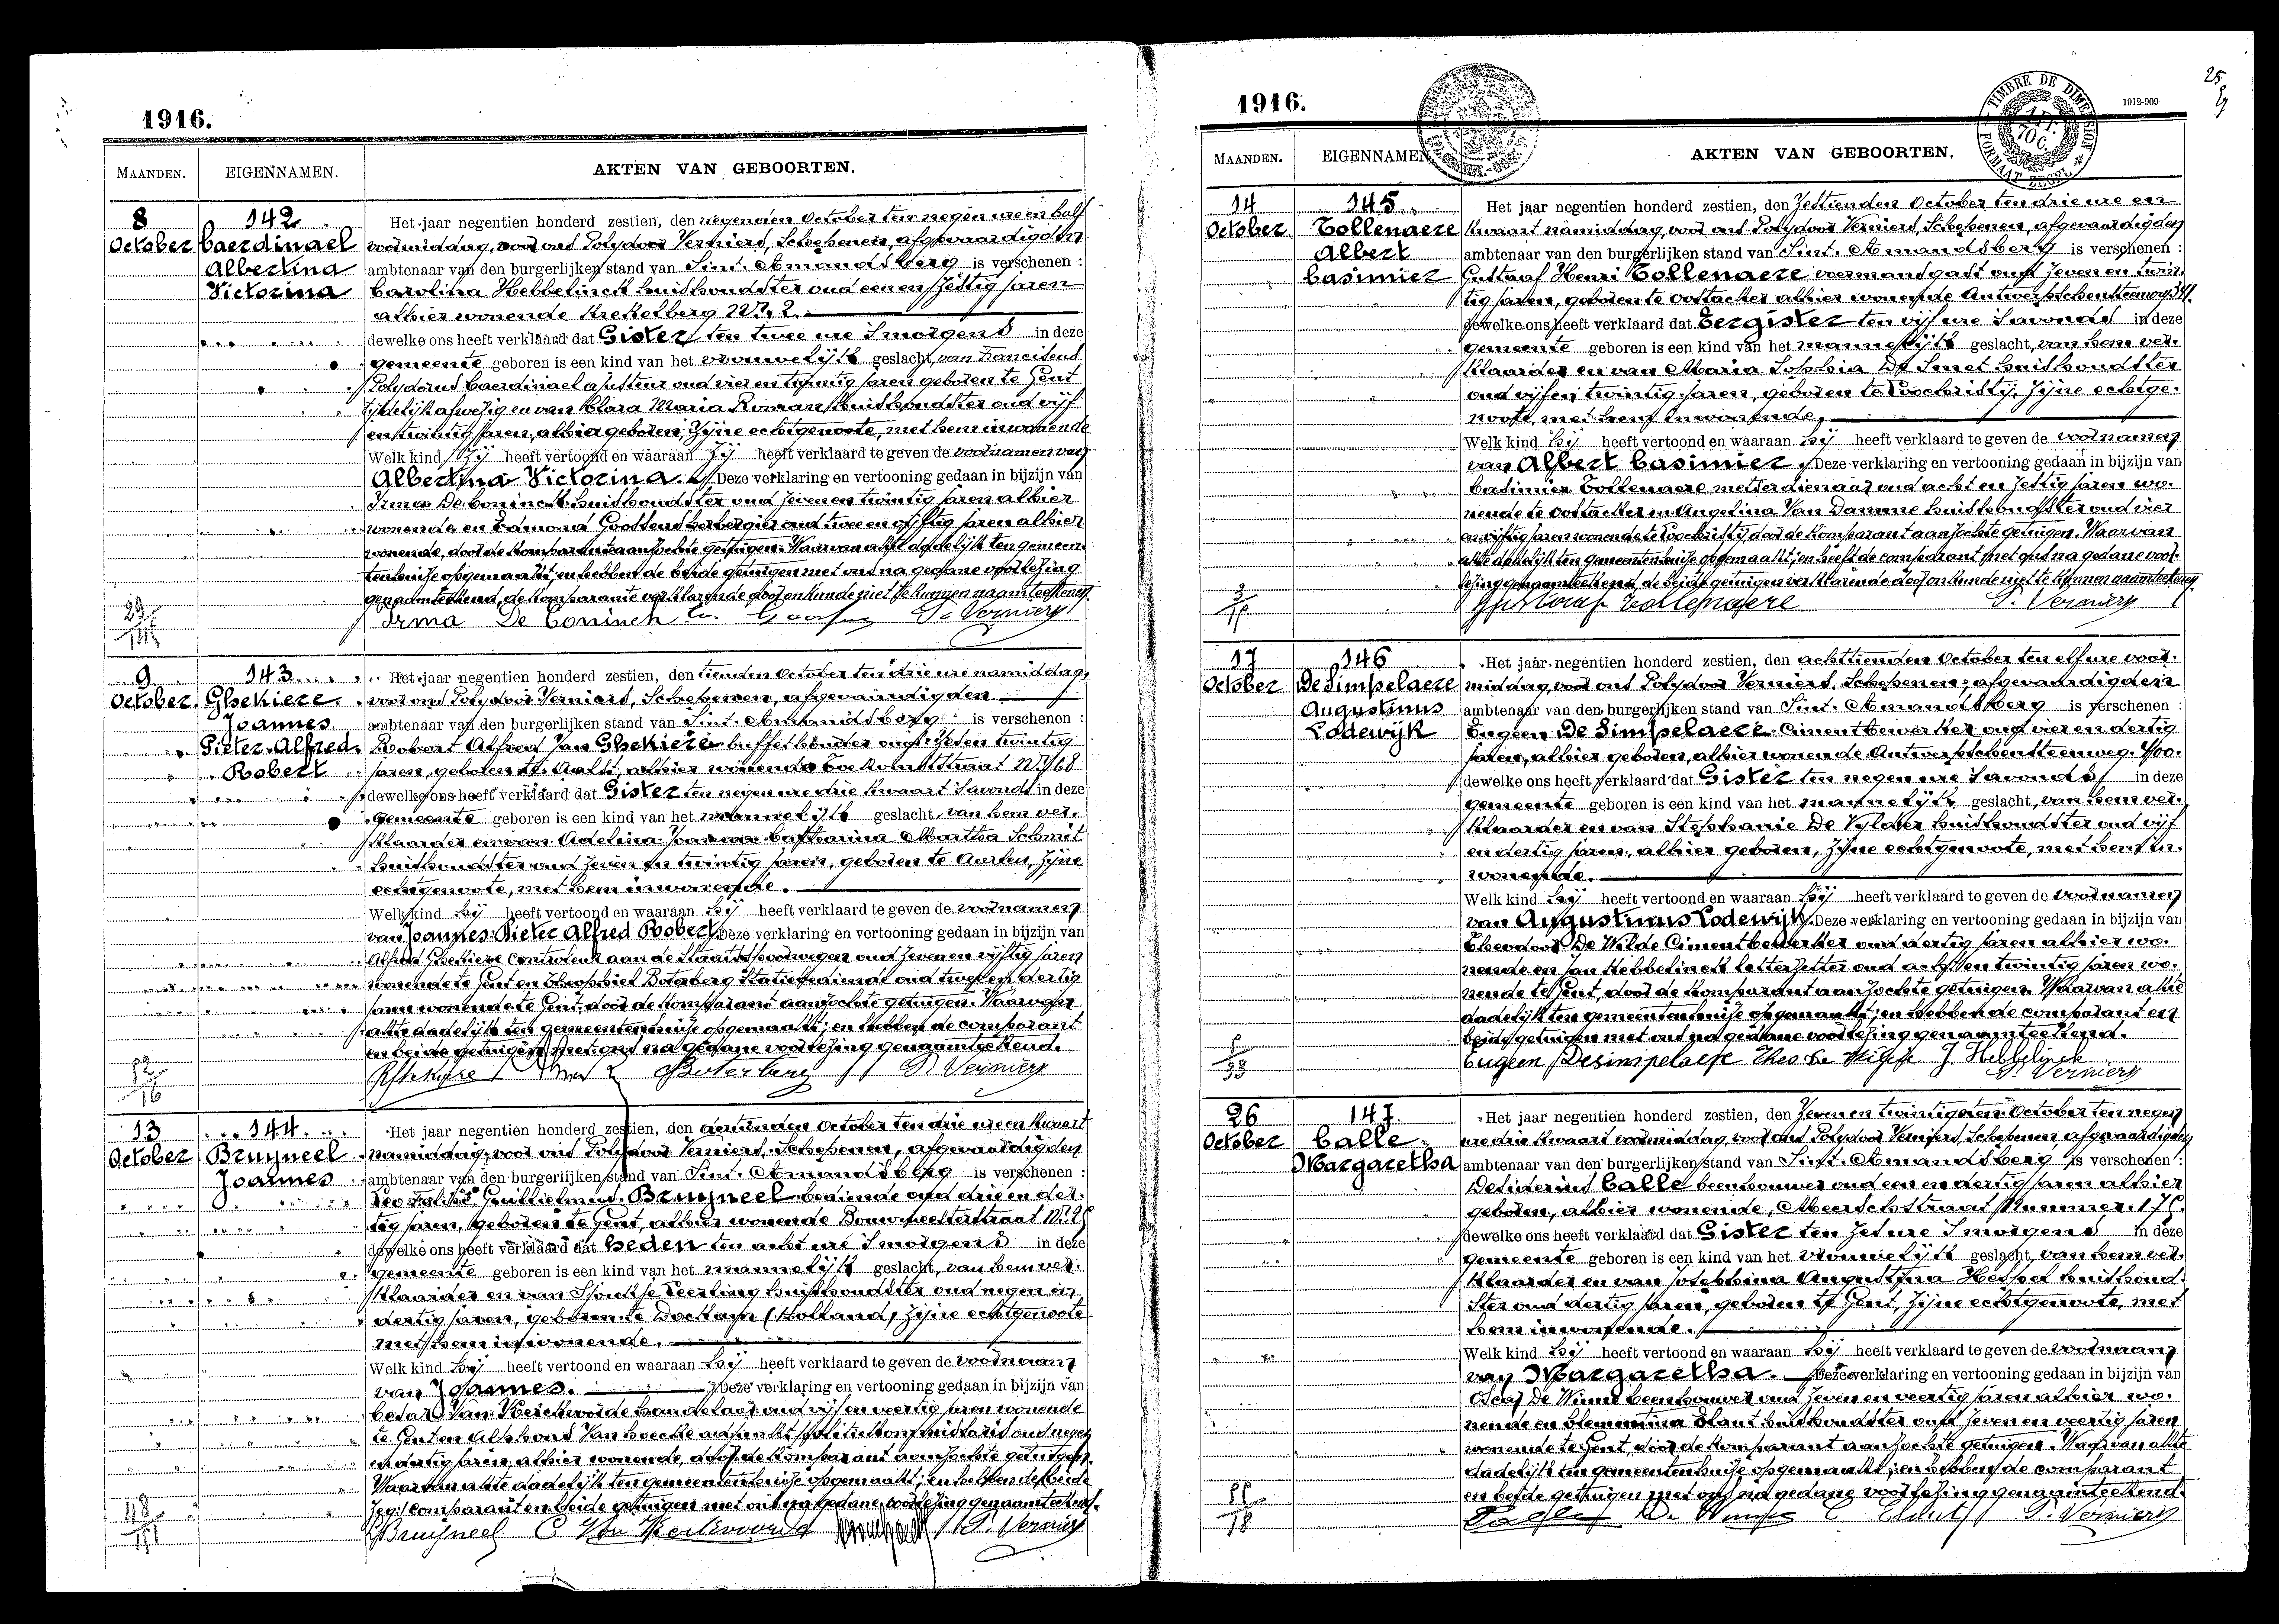 1916.
MAANDEN. EIGENNAMEN. AKTEN VAN GEBOORTEN.
8 142
October Caerdinael
Albertina
Victorina
Het jaar negentien honderd zestien, den negenden October ten negen ure en half
voormiddag, voor ons Polydoor Verniers, Schepenen, afgevaardigden
ambtenaar van den burgerlijken stand van Sint. Amandsberg is verschenen :
Carolina Hebbelinck huishoudster oud een en zestig jaren
alhier wonende Krekelberg Nr. 2.
dewelke ons heeft verklaard dat Gister ten twee ure s'morgens in deze
gemeente geboren is een kind van het vrouwelijk geslacht, van Franciscus
Polydorus Caerdinael ajusteur oud vier en twintig jaren geboren te Gent
tijdelijk afwezig en van Clara Maria Roman huishoudster oud vijf
en twintig jaren, alhier geboren, zijne echtgenoote, met hem inwonende
Welk kind zij heeft vertoond en waaraan zij heeft verklaard te geven de voornamen van
Albertina Victorina. Deze verklaring en vertooning gedaan in bijzijn van
Irma De Coninck huishoudster oud zeven en twintig jaren alhier
wonende en Edmond Goossens herbergier oud twee en vijftig jaren alhier
wonende, door de komparante aanzochte getuigen. Waarvan akte dadelijk ten gemeen-
tenhuize opgemaakt; en hebben de beide getuigen met ons na gedane voorlezing
genaamteekend, de komparante verklarende door onkunde niet te kunnen naamteekenen.
Irma De Coninck P. Verniers
9 143
October Ghekiere
Joannes
Pieter Alfred
Robert
Het jaar negentien honderd zestien, den tienden October ten drie ure namiddag,
voor ons Polydoor Verniers, Schepenen, afgevaardigden
ambtenaar van den burgerlijken stand van Sint. Amandsberg is verschenen :
Robert Alfred Jan Ghekiere buffethouder oud zeven twintig
jaren, geboren te Aalst, alhier wonende Toekomststraat Nr. 68
dewelke ons heeft verklaard dat Gister ten negen ure drie kwaart s'avonds in deze
gemeente geboren is een kind van het mannelijk geslacht, van hem ver-
klaarder en van Adelina Joanna Catharina Martha Schmit
huishoudster oud zeven en twintig jaren, geboren te Aarlen, zijne
echtgenoote, met hem inwonende.
Welk kind hij heeft vertoond en waaraan hij heeft verklaard te geven de voornamen
van Joannes Pieter Alfred Robert. Deze verklaring en vertooning gedaan in bijzijn van
Alfred Ghekiere Controleur aan de Staatsspoorwegen oud zeven en vijftig jaren
wonende te Gent en Theophiel Boterberg oud twee en dertig
jaren wonende te Gent door de komparant aanzochte getuigen. Waarvan
akte dadelijk ten gemeentenhuize opgemaakt; en hebben de comparant
en beide getuigen met ons na gedane voorlezing genaamteekend.
Boterberg P. Verniers
13 144
October Bruyneel
Joannes
Het jaar negentien honderd zestien, den dertienden October ten drie ure en kwaart
namiddag, voor ons Polydoor Verniers, Schepenen, afgevaardigden
ambtenaar van den burgerlijken stand van Sint. Amandsberg is verschenen :
Guillielmus Bruyneel bediende oud drie en der-
tig jaren, geboren te Gent, alhier wonende Bouwmeesterstraat
dewelke ons heeft verklaard dat heden ten acht ure s'morgens in deze
gemeente geboren is een kind van het mannelijk geslacht, van hem ver-
klaarder en van huishoudster oud negen en
dertig jaren, geboren te Dockum (Holland) zijne echtgenoote
met hem inwonende.
Welk kind hij heeft vertoond en waaraan hij heeft verklaard te geven de voornaam
van Joannes. Deze verklaring en vertooning gedaan in bijzijn van
Cesar Van Kerckvoorde handelaar oud vijf en veertig jaren wonende
te Gent en Alphons Van hoecke oud negen
en dertig jaren, alhier wonende, door de komparant aanzochte getuigen.
Waarvan akte dadelijk ten gemeentenhuize opgemaakt; en hebben de beide
comparant en beide getuigen met ons na gedane voorlezing genaamteekend.
Bruyneel C Van Kerkvoorde P. Verniers
1916.
TIMBRE DE DIMENSION
FORMAAT ZEGEL
1912-909
25
MAANDEN. EIGENNAMEN. AKTEN VAN GEBOORTEN.
14 145
October Tollenaere
Albert
Casimier
Het jaar negentien honderd zestien, den zestienden October ten drie ure en
kwaart namiddag, voor ons Polydoor Verniers, Schepenen, afgevaardigden
ambtenaar van den burgerlijken stand van Sint. Amandsberg is verschenen :
Gustaaf Henri Tollenaere voermansgast oud zeven en twin-
tig jaren, geboren te Oostacker alhier wonende Antwerpschensteenweg
dewelke ons heeft verklaard dat Eergister ten vijf ure s'avonds in deze
gemeente geboren is een kind van het mannelijk geslacht, van hem ver-
klaarder en van Maria Sophia De Smet huishoudster
oud vijf en twintig jaren, geboren te Loochristij, zijne echtge-
noote, met hem inwonende.
Welk kind hij heeft vertoond en waaraan hij heeft verklaard te geven de voornamen
van Albert Casimier. Deze verklaring en vertooning gedaan in bijzijn van
Casimier Tollenaere metserdienaar oud acht en zestig jaren wo-
nende te Oostacker en Angelina Van Damme huishoudster oud vier
en vijftig jaren wonende te Loochristij door de komparant aanzochte getuigen. Waarvan
akte dadelijk ten gemeentenhuize opgemaakt; en heeft de comparant met ons na gedane voor-
lezing genaamteekend, de beide getuigen verklarende door onkunde niet te kunnen naamteekenen.
Gustaaf Tollenaere P. Verniers
17 146
October De Simpelaere
Augustinus
Lodewijk
Het jaar negentien honderd zestien, den achttienden October ten elf ure voor-
middag, voor ons Polydoor Verniers, Schepenen, afgevaardigden
ambtenaar van den burgerlijken stand van Sint. Amandsberg is verschenen :
Eugeen De Simpelaere Cimentbewerker oud vier en dertig
jaren, alhier geboren, alhier wonende Antwerpschensteenweg 400.
dewelke ons heeft verklaard dat Gister ten negen ure s'avonds in deze
gemeente geboren is een kind van het mannelijk geslacht, van hem ver-
klaarder en van Stephanie De Vylder huishoudster oud vijf
en dertig jaren, alhier geboren, zijne echtgenoote, met hem in-
wonende.
Welk kind hij heeft vertoond en waaraan hij heeft verklaard te geven de voornamen
van Augustinus Lodewijk. Deze verklaring en vertooning gedaan in bijzijn van
Theodoor De Wilde Cimentbewerker oud dertig jaren alhier wo-
nende en Jan Hebbelinck letterzetter oud acht en twintig jaren wo-
nende te Gent, door de komparant aanzochte getuigen. Waarvan akte
dadelijk ten gemeentenhuize opgemaakt; en hebben de comparant en
beide getuigen met ons na gedane voorlezing genaamteekend.
Eugeen Desimpelaere Theo De Wilde J. Hebbelinck
P. Verniers
26 147
October Calle
Margaretha
Het jaar negentien honderd zestien, den zeven en twintigsten October ten negen
ure drie kwaart voormiddag, voor ons Polydoor Verniers, Schepenen afgevaardigden
ambtenaar van den burgerlijken stand van Sint. Amandsberg is verschenen :
Desiderius Calle beenhouwer oud een en dertig jaren alhier
geboren, alhier wonende, Meerschstraat Nummer
dewelke ons heeft verklaard dat Gister ten zes ure s'morgens in deze
gemeente geboren is een kind van het vrouwelijk geslacht, van hem ver-
klaarder en van Josephina Augustina Hespel huishoud-
ster oud dertig jaren, geboren te Gent, zijne echtgenoote, met
hem inwonende.
Welk kind hij heeft vertoond en waaraan hij heeft verklaard te geven de voornaam
van Margaretha. Deze verklaring en vertooning gedaan in bijzijn van
Oscar De Winne beenhouwer oud zeven en veertig jaren alhier wo-
nende en Clementina huishoudster oud zeven en veertig jaren
wonende te Gent, door de komparant aanzochte getuigen. Waarvan akte
dadelijk ten gemeentenhuize opgemaakt; en hebben de comparant
en beide getuigen met ons na gedane voorlezing genaamteekend.
P. Verniers